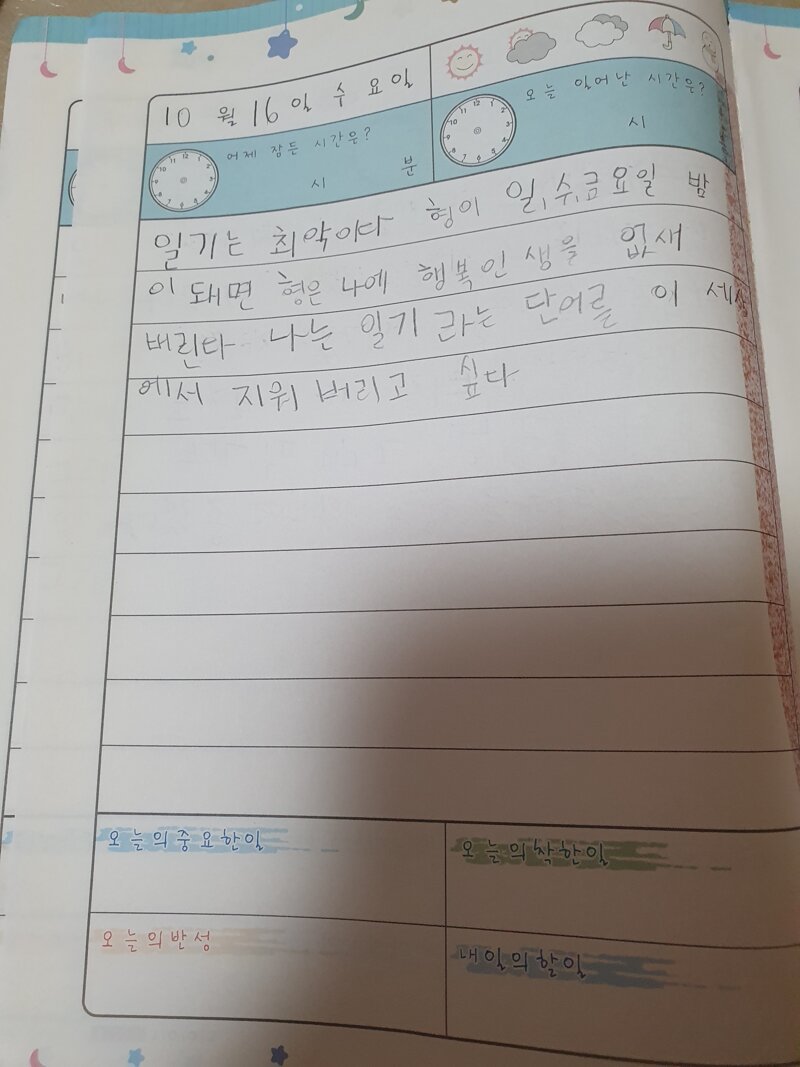 10 월 16 일 수 요일
어제 잠든 시간은?
시 분
오늘 일어난 시간은?
시
일기는 최악이다 형이 일,수,금요일 밤
이 돼면 형은 나에 행복인 생을 없새
버린다 나는 일기 라는 단어를 이 세상
에서 지워 버리고 싶다
오늘의중요한일
오늘의착한일
오늘의반성
내일의할일